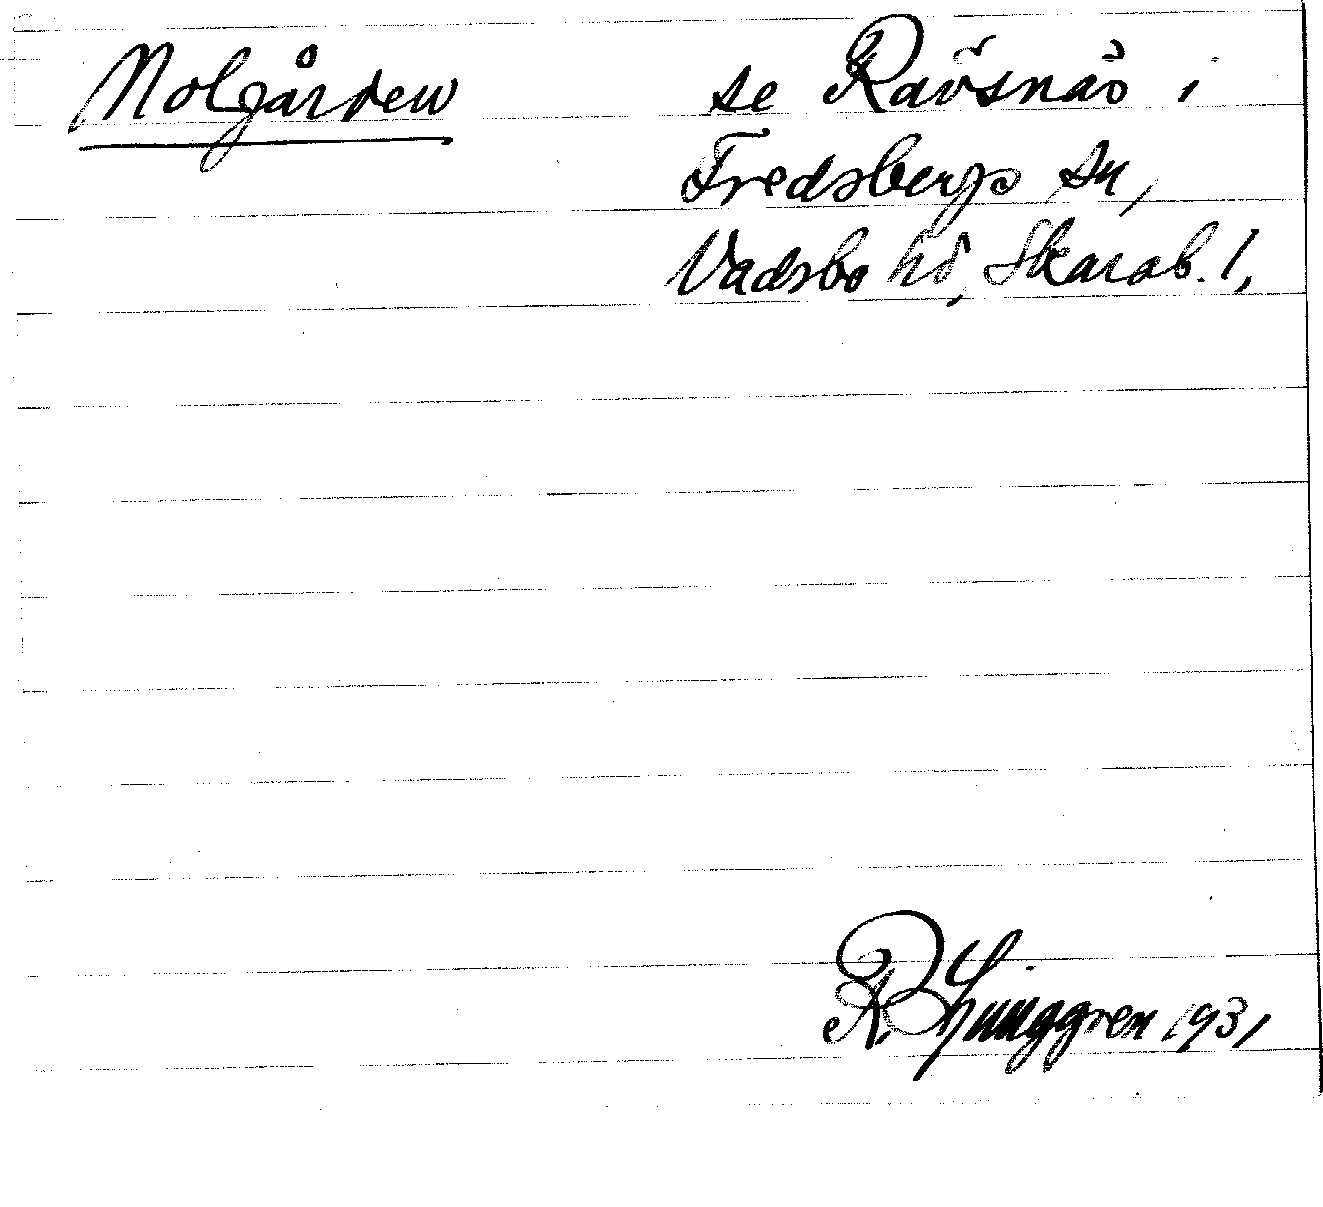 Nolgården se Ravsnäs i
Fredsbergs sn,
Vadsbo hd, Skarab. l,
R. Ljunggren 1931